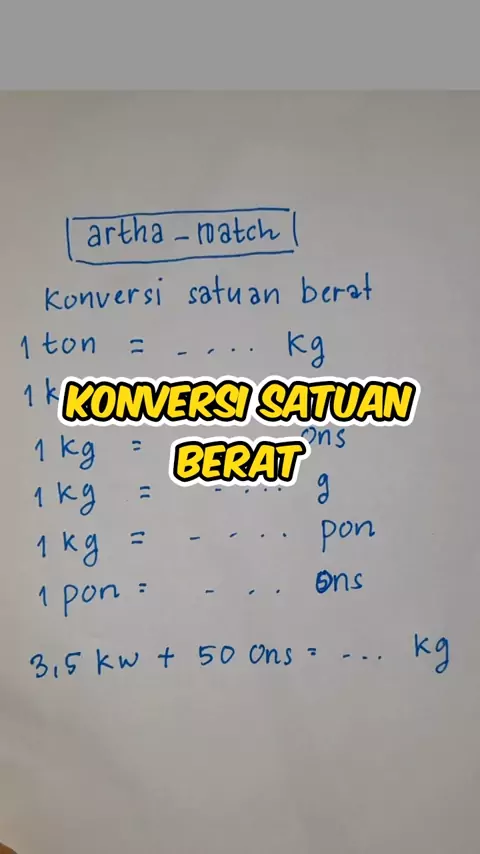 artha_match
Konversi satuan berat
1 ton = - . . . . Kg
1 k
KONVERSI SATUAN
1 kg = ons
BERAT
1 kg = - . . . . g
1 kg = - - . . . pon
1 pon = - . . . ons
3,5 kw + 50 ons = - . . . kg